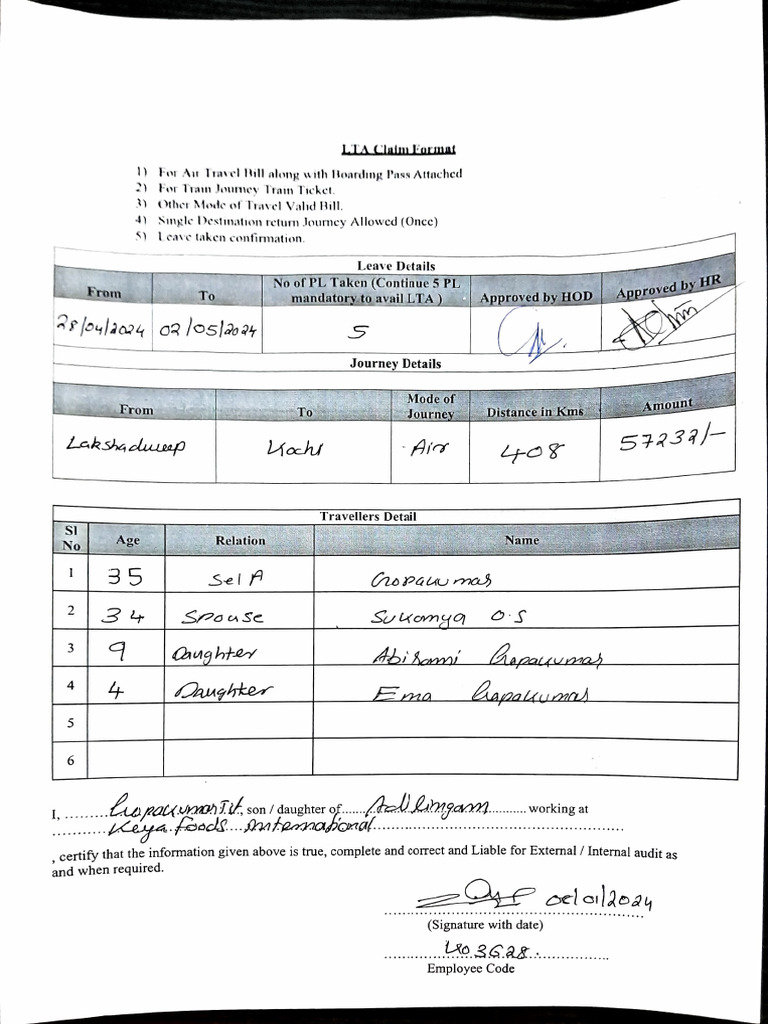 LTA Claim Format
1) For Air Travel Bill along with Boarding Pass Attached
2) For Train Journey Train Ticket.
3) Other Mode of Travel Valid Bill.
4) Single Destination return Journey Allowed (Once)
5) Leave taken confirmation.
Leave Details
From To No of PL Taken (Continue 5 PL mandatory to avail LTA ) Approved by HOD Approved by HR
28/04/2024 02/05/2024 5
Journey Details
From To Mode of Journey Distance in Kms Amount
Lakshadweep Kochi Air 408 57232/-
Travellers Detail
Sl No Age Relation Name
1 35 Self Gopakumar
2 34 Spouse Sukanya O.S
3 9 Daughter Abirami Gopakumar
4 4 Daughter Ema Gopakumar
5
6
I, ......... Gopakumar T.V, son / daughter of....... ........... working at
............ Keya Foods International ............
, certify that the information given above is true, complete and correct and Liable for External / Internal audit as
and when required.
/01/2024
(Signature with date)
Employee Code